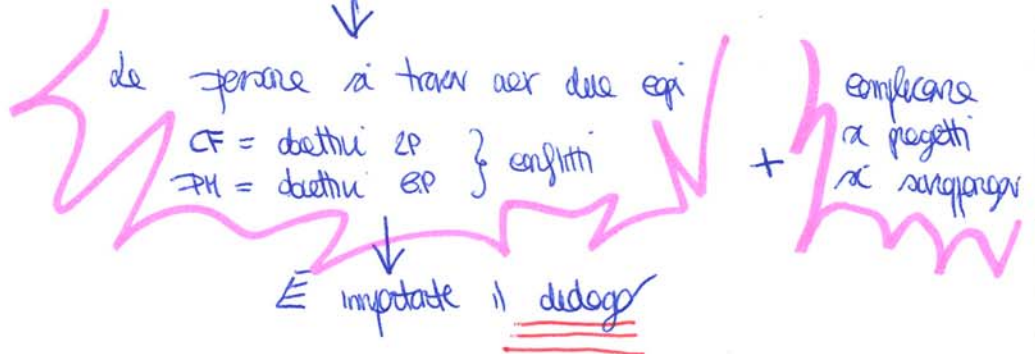 Le persone si trovano aver due capi
CF = obiettivi LP } conflitti
PM = obiettivi BP
+
complicazione
i progetti
si sovrappongono
È importante il dialogo